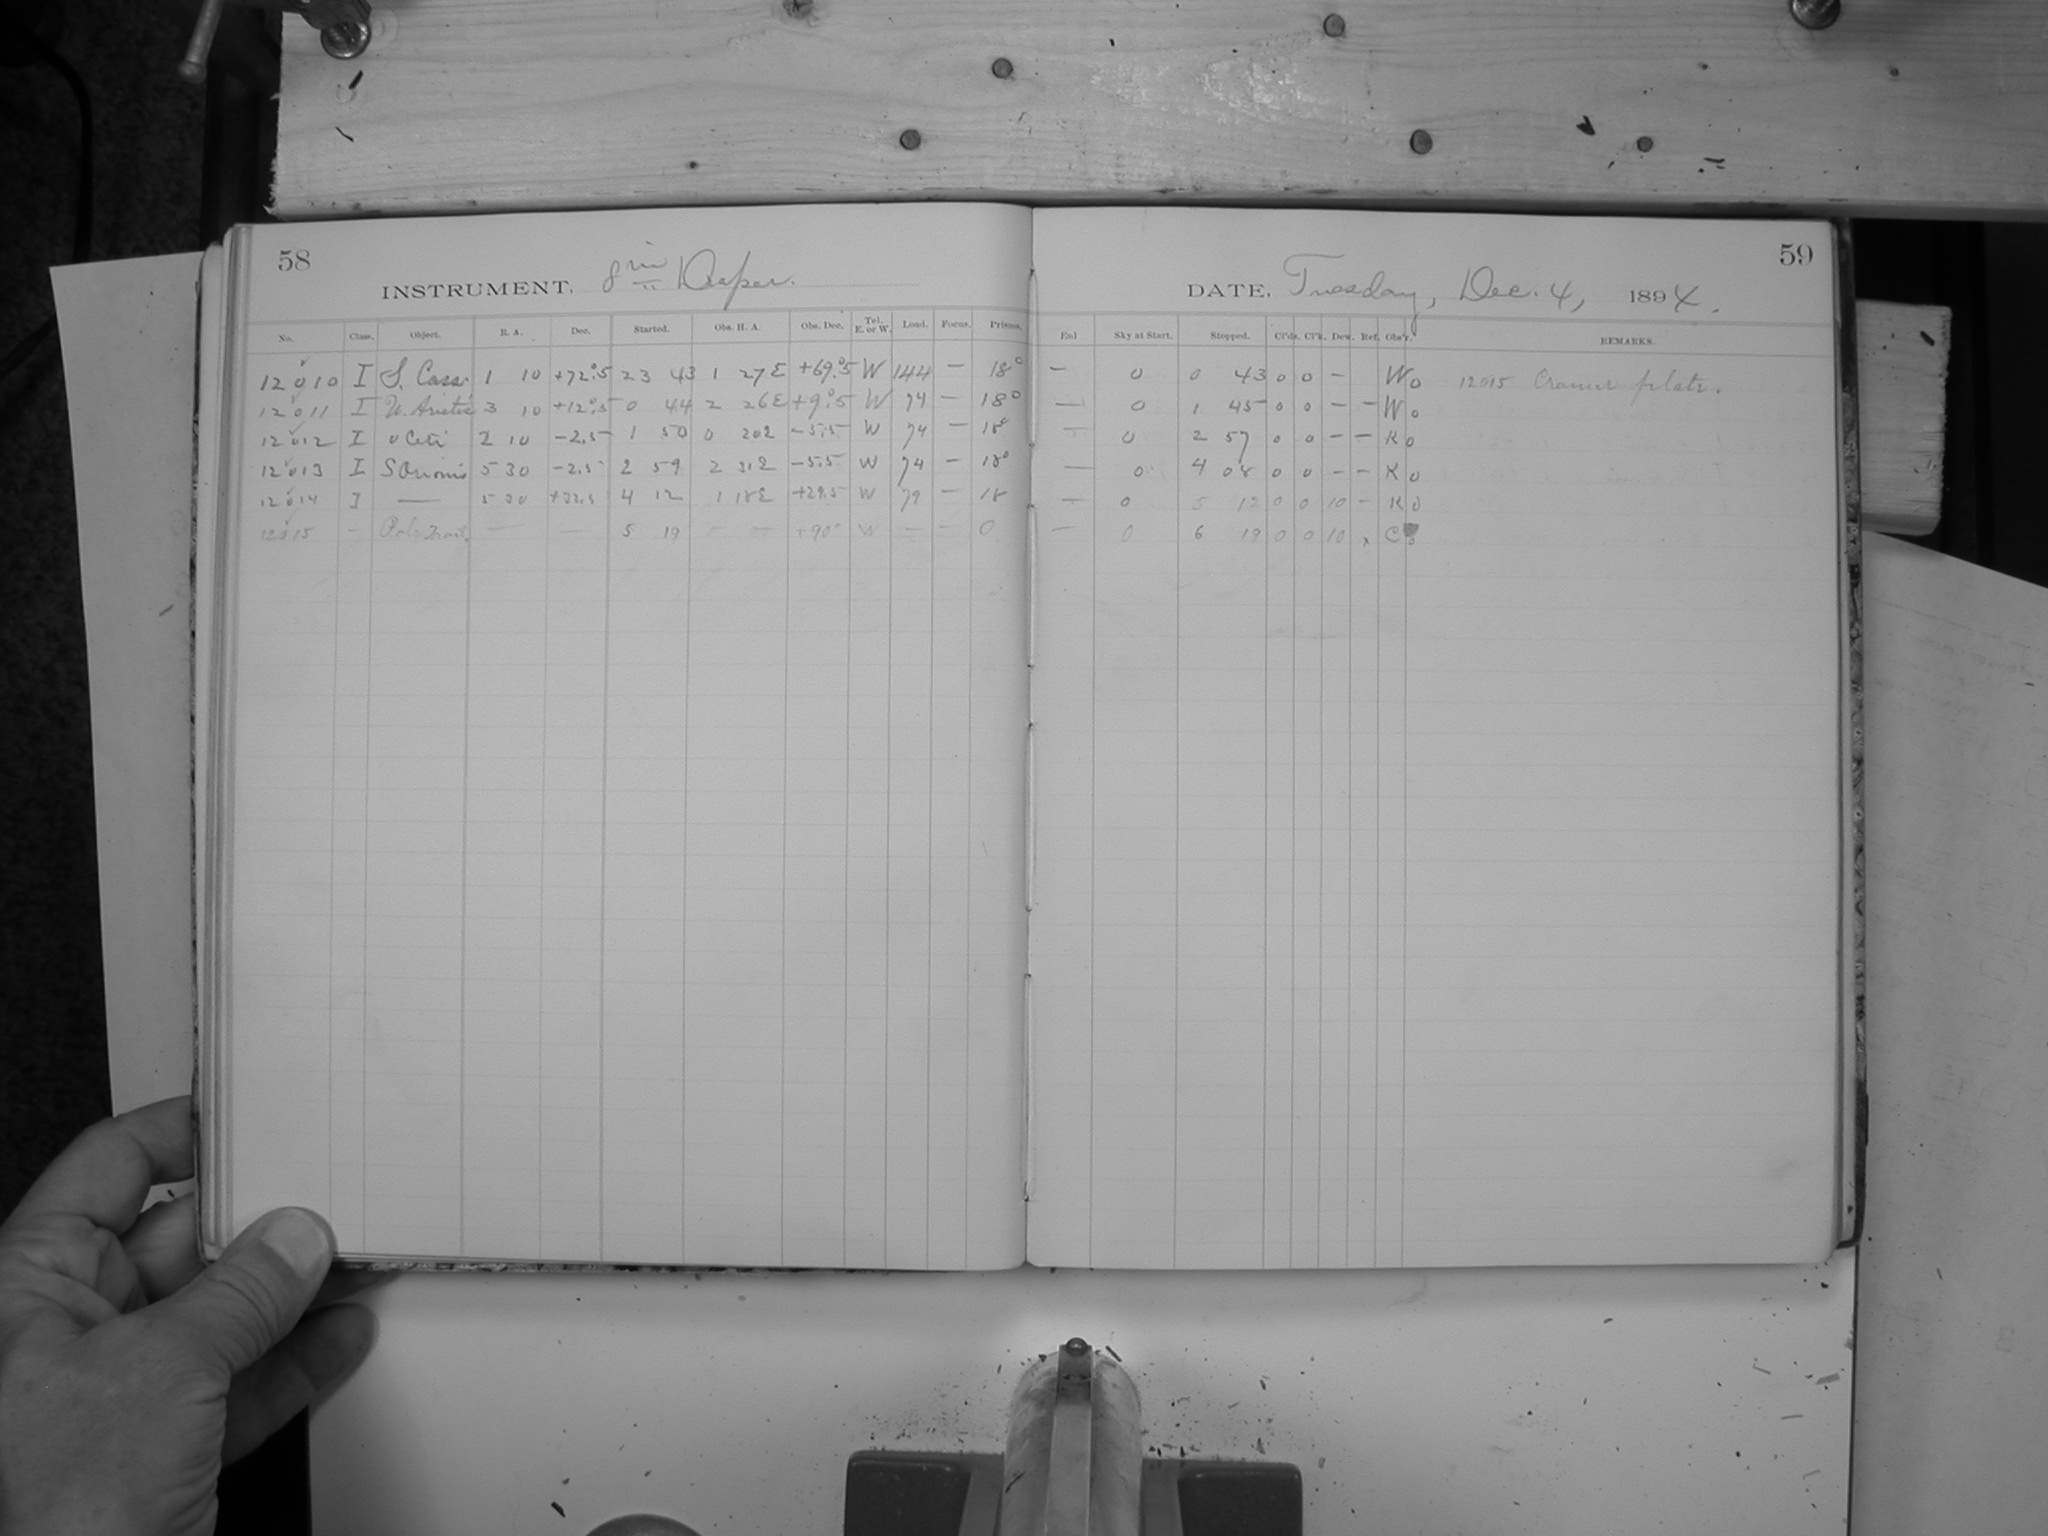 58
INSTRUMENT, 8 in Draper.
No. Class. Object. R. A. Dec. Started. Obs. H. A. Obs. Dec. Tel. E. or W. Load. Focus. Prisms.
12010 I S. Cass. 1 10 +72°.5 23 43 1 27 E +69°.5 W 144 — 18°
12011 I U. Arietis 3 10 +12°.5 0 44 2 26 E +9°.5 W 74 — 18°
12012 I o Ceti 2 10 -2.5 1 50 0 20 E -5.5 W 74 — 18°
12013 I S Orionis 5 30 -2.5 2 59 2 31 E -5.5 W 74 — 18°
12014 I — 5 30 +32.5 4 12 1 18 E +29.5 W 79 — 18
12015 — Pole Trail, — — 5 19 0 00 +90° W — — 0
59
DATE, Tuesday, Dec. 4, 1894.
Enl Sky at Start. Stopped. Cl'ds. Cl'k. Dew. Ref. Obs'r. REMARKS.
— 0 0 43 0 0 — W 0 12015 Cramer plate.
— 0 1 45 0 0 — — W 0
— 0 2 57 0 0 — — K 0
— 0 4 08 0 0 — — K 0
— 0 5 12 0 0 10 — K 0
— 0 6 19 0 0 10 C